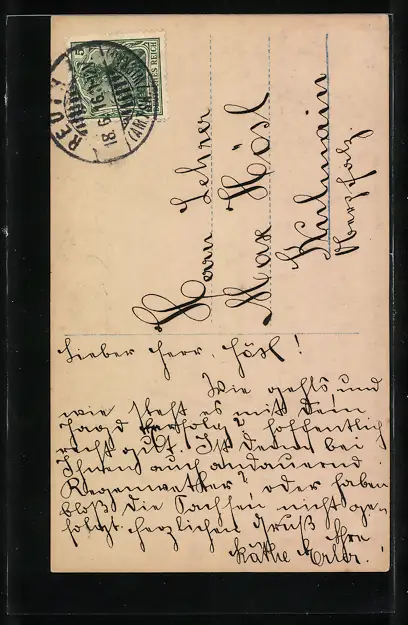 REUTH
18.6.
5
DEUTSCHES REICH
Herrn Lehrer
Max Hösl
Kulmain
Oberpfalz.
Lieber Herr Hösl!
Wie gehts und
wie steht es mit dem
Jagderfolg? Hoffentlich
recht gut. Ist denn bei
Ihnen auch andauernd
Regenwetter? oder haben
bloß die Sachsen nicht ge-
folgt. Herzlichen Gruß Ihre
Käthe